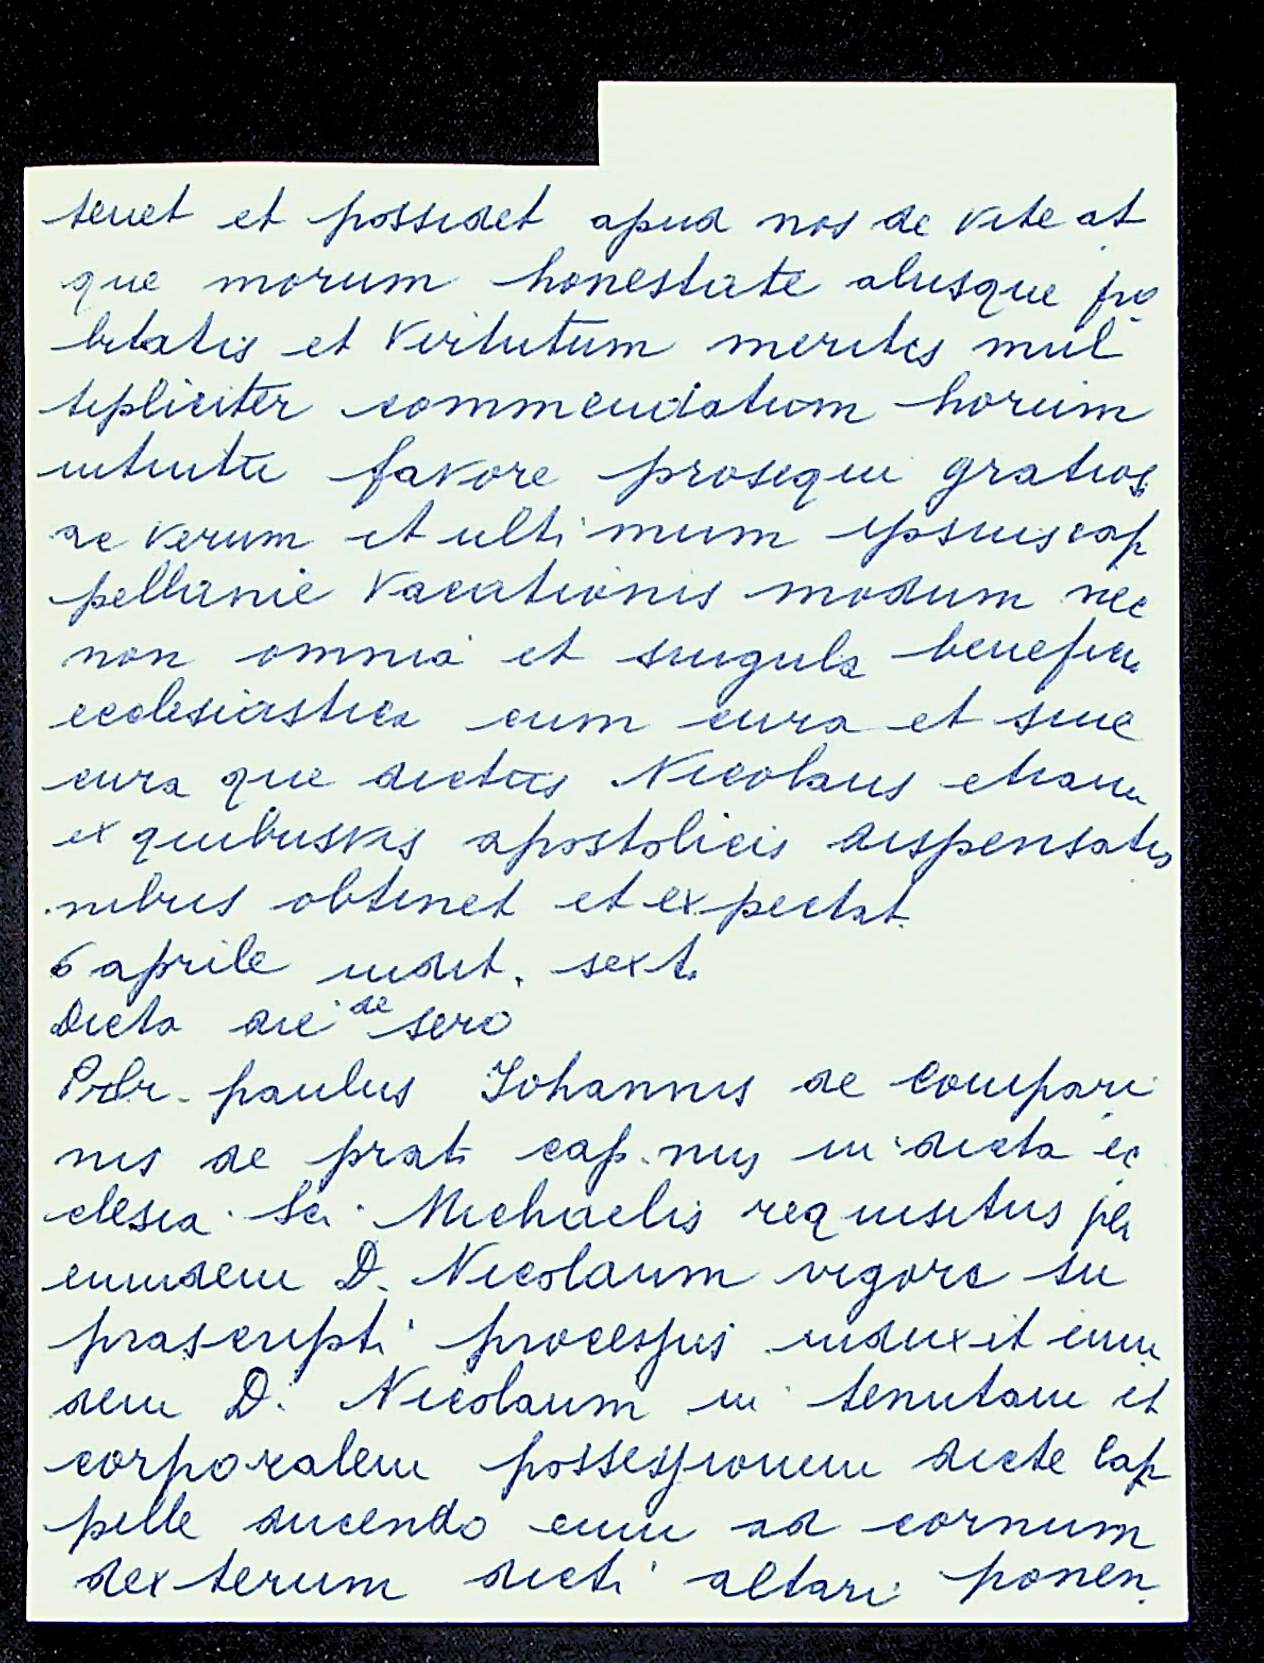 tenet et possidet apud nos de vite at
que morum honestate aliisque pro
bitatis et virtutum meritis mul
tipliciter commendatum horum
intuitu favore prosequi gratios
de verum et ultimum ipsius cap
pellanie vacationis modum nec
non omnia et singula beneficia
ecclesiastica cum cura et sine
cura que dictus Nicolaus etiam
ex quibusvis apostolicis dispensatio
nibus obtinet et expectat.
6 aprile indit. sext.
Dicta die de sero
Prbr. paulus Johannis de Compari
nis de prato cap.nus in dicta ec
clesia Sci. Michaelis requisitus per
eumdem D. Nicolaum vigore su
prascripti processus induxit eum
dem D. Nicolaum in tenutam et
corporalem possessionem dicte Cap
pelle ducendo eum ad cornum
dexterum dicti altari ponen